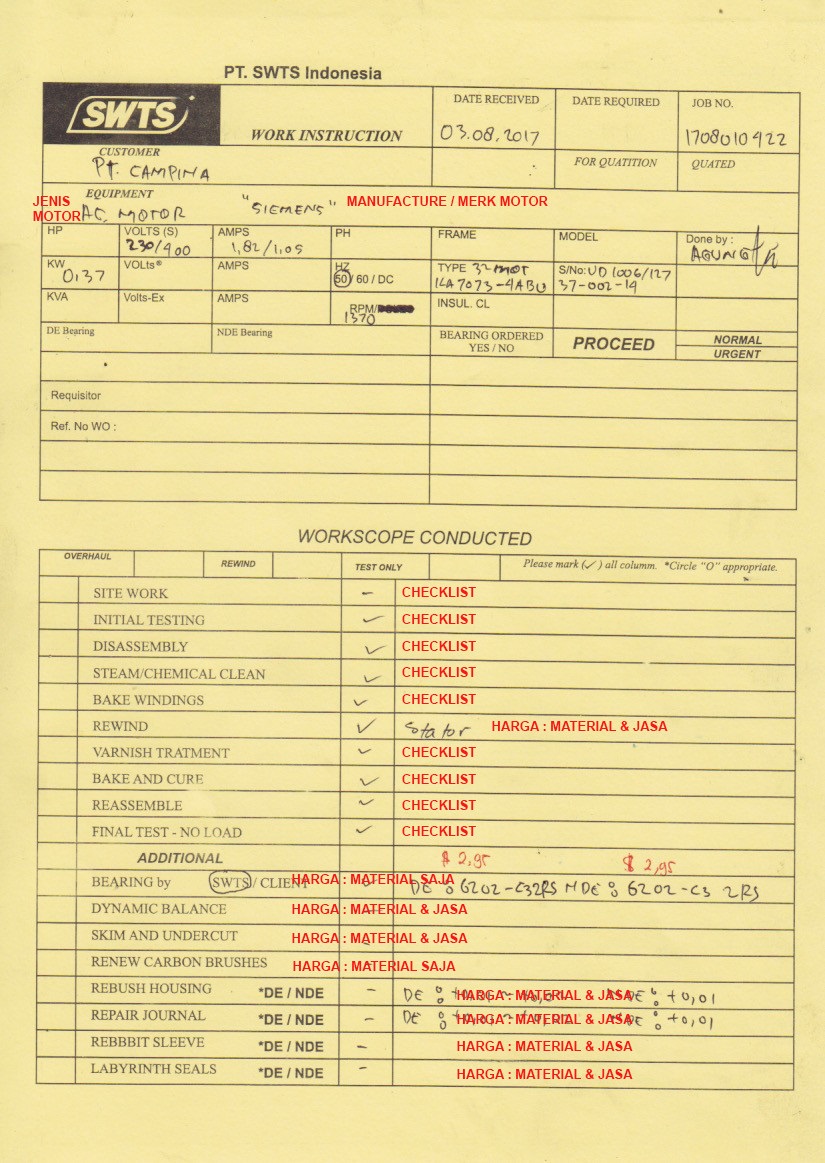 PT. SWTS Indonesia
SWTS
WORK INSTRUCTION
DATE RECEIVED
03.08.2017
DATE REQUIRED
JOB NO.
1708010922
CUSTOMER
PT. CAMPINA
FOR QUATITION
QUATED
EQUIPMENT
JENIS MOTOR
AC. MOTOR
"SIEMENS"
MANUFACTURE / MERK MOTOR
HP
VOLTS (S)
230/400
AMPS
1,82/1,05
PH
FRAME
MODEL
Done by :
AGUNG
KW
0,37
VOLts®
AMPS
HZ
50 / 60 / DC
TYPE
1LA7073-4AB
S/No: UD 1006/127
37-002-14
KVA
Volts-Ex
AMPS
RPM/
1370
INSUL. CL
DE Bearing
NDE Bearing
BEARING ORDERED
YES / NO
PROCEED
NORMAL
URGENT
Requisitor
Ref. No WO :
WORKSCOPE CONDUCTED
OVERHAUL
REWIND
TEST ONLY
Please mark (✓) all columm. *Circle "O" appropriate.
SITE WORK – CHECKLIST
INITIAL TESTING ✓ CHECKLIST
DISASSEMBLY ✓ CHECKLIST
STEAM/CHEMICAL CLEAN ✓ CHECKLIST
BAKE WINDINGS ✓ CHECKLIST
REWIND ✓ Stator HARGA : MATERIAL & JASA
VARNISH TRATMENT ✓ CHECKLIST
BAKE AND CURE ✓ CHECKLIST
REASSEMBLE ✓ CHECKLIST
FINAL TEST - NO LOAD ✓ CHECKLIST
ADDITIONAL $ 2,95 $ 2,95
BEARING by SWTS / CLIENT HARGA : MATERIAL SAJA DE : 6202-C32RS NDE : 6202-C3 2RS
DYNAMIC BALANCE HARGA : MATERIAL & JASA
SKIM AND UNDERCUT HARGA : MATERIAL & JASA
RENEW CARBON BRUSHES HARGA : MATERIAL SAJA
REBUSH HOUSING *DE / NDE – DE : HARGA : MATERIAL & JASA NDE : +0,01
REPAIR JOURNAL *DE / NDE – DE : HARGA : MATERIAL & JASA NDE : +0,01
REBBBIT SLEEVE *DE / NDE – HARGA : MATERIAL & JASA
LABYRINTH SEALS *DE / NDE – HARGA : MATERIAL & JASA